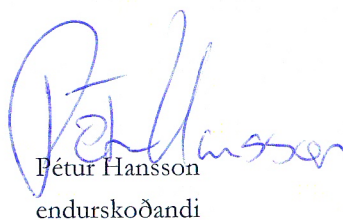 Pétur Hansson
Pétur Hansson
endurskoðandi